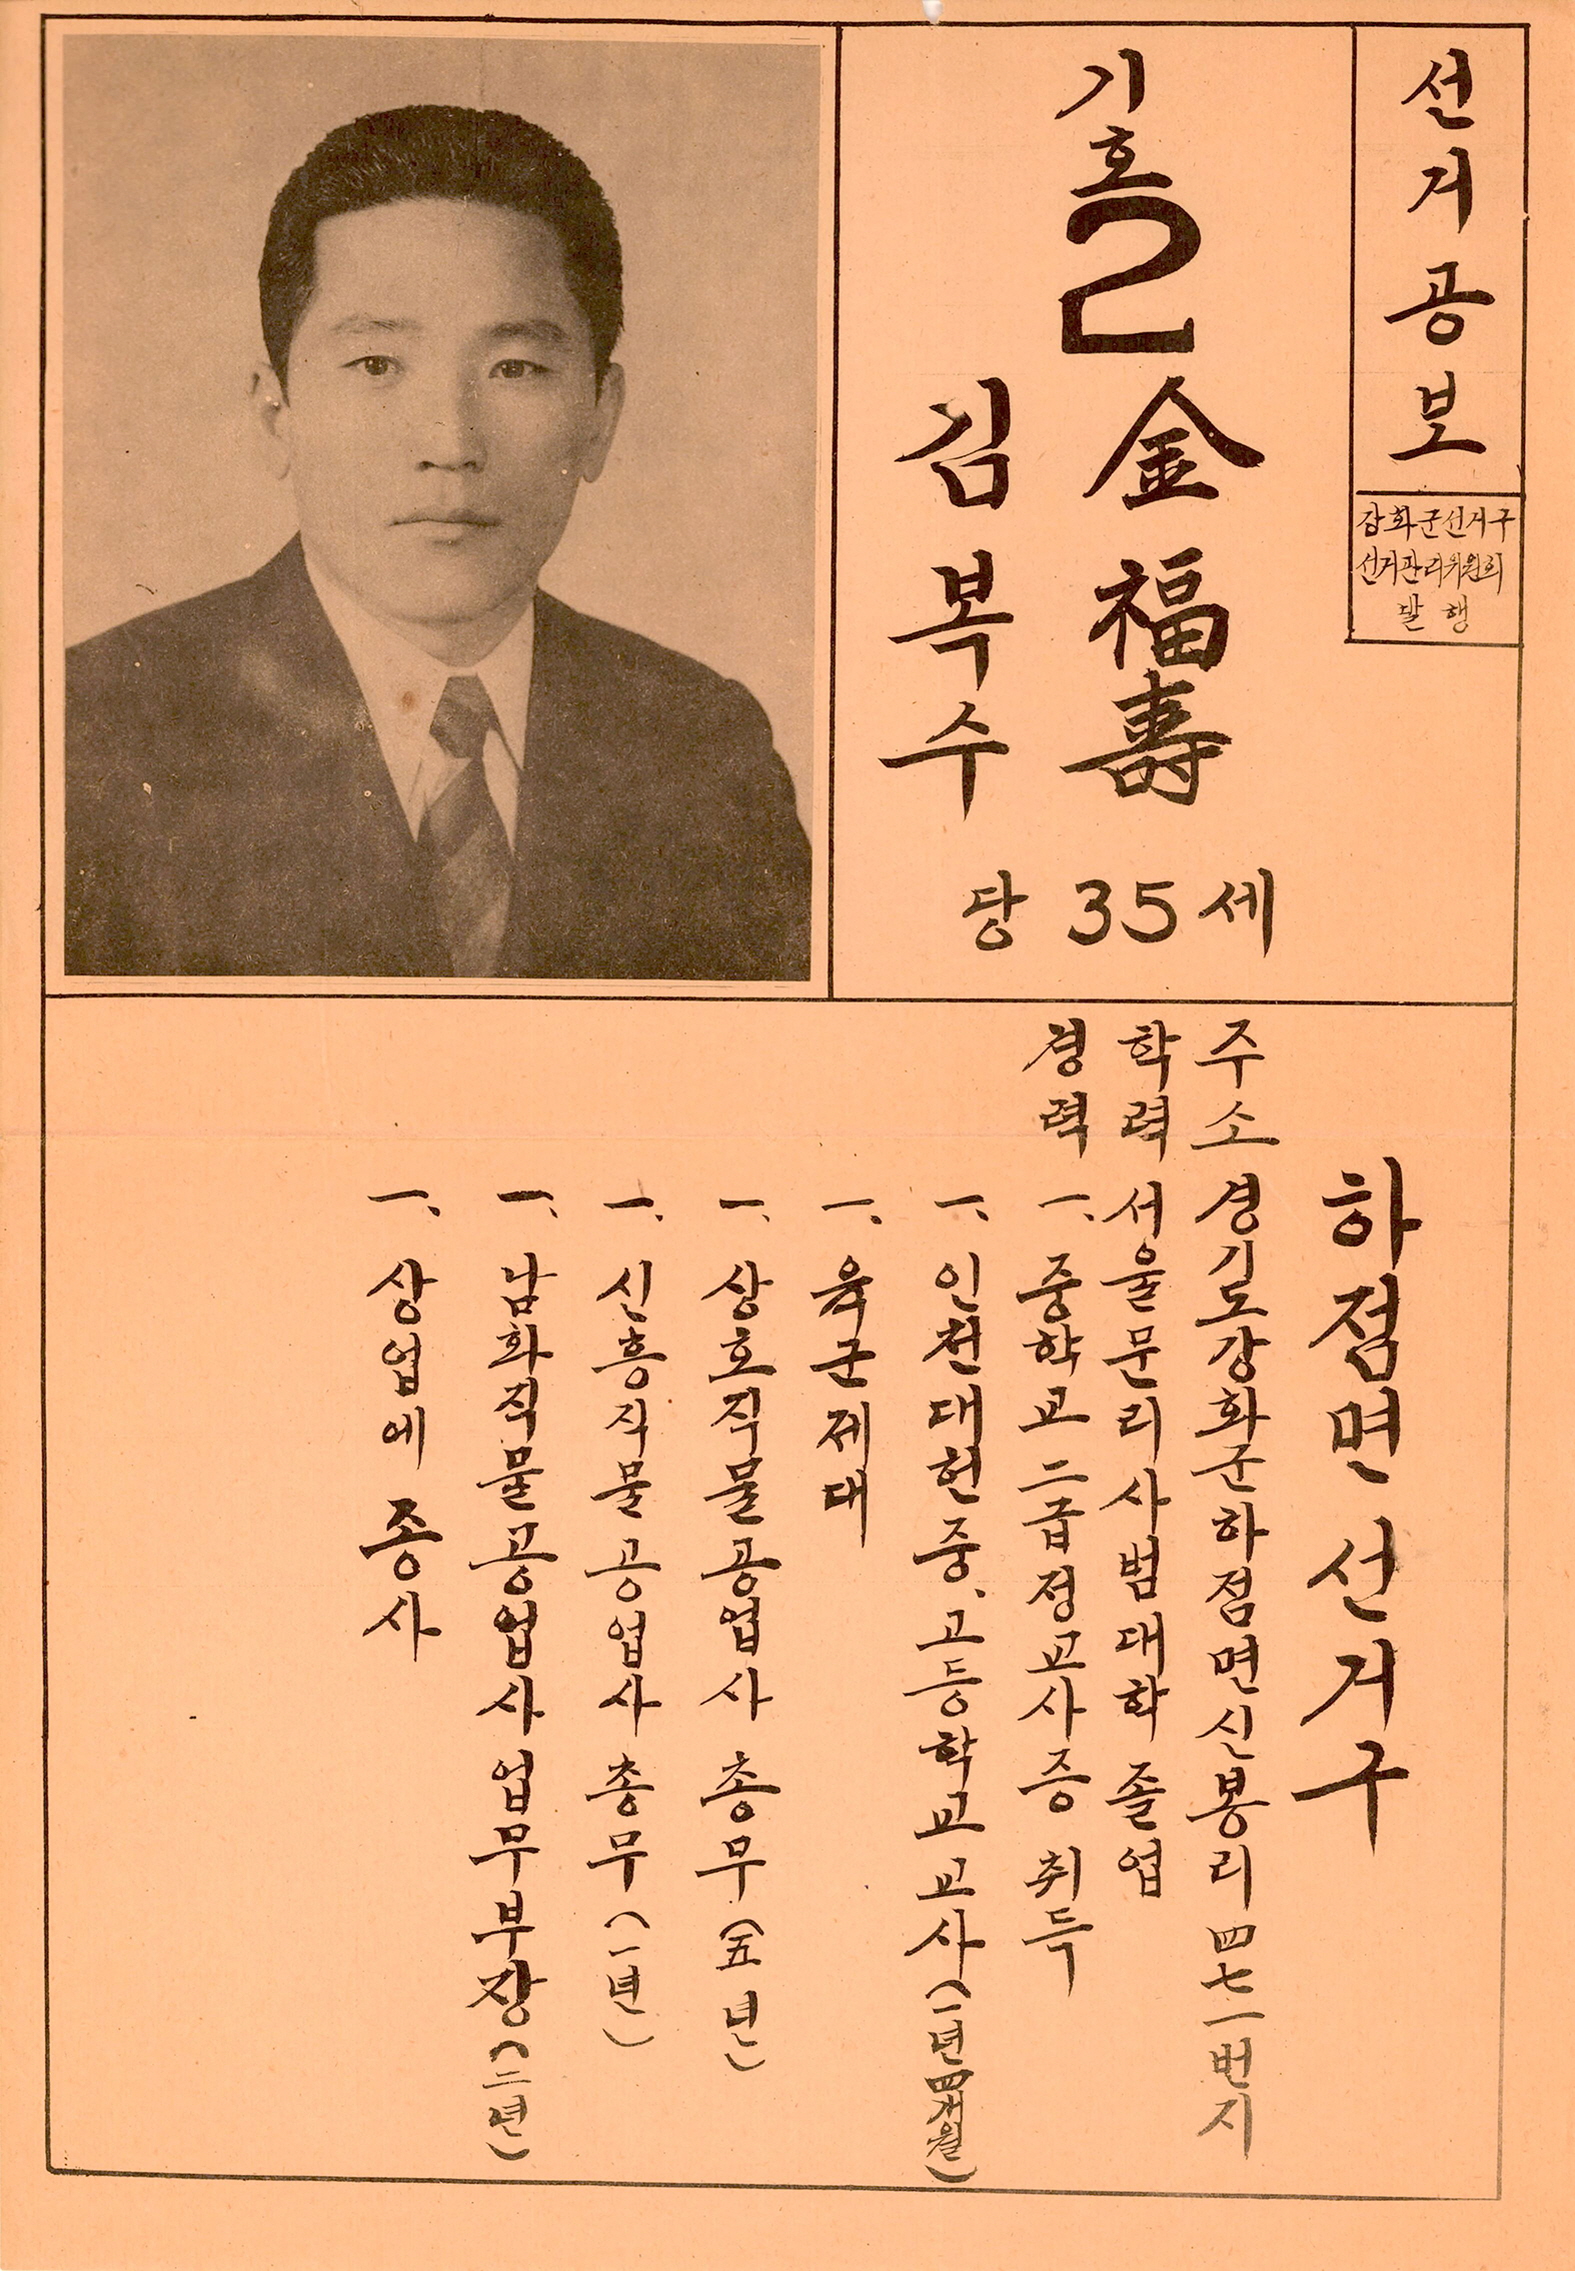 선거공보
강화군선거구
선거관리위원회
발행
기호2
金福壽
김복수
당 35세
하점면 선거구
주소 경기도강화군하점면신봉리四七一번지
학력 서울문리사범대학 졸업
경력 一. 중학교 二급정교사증 취득
一. 인천대헌중.고등학교교사(一년四개월)
一. 육군제대
一. 상호직물공업사 총무(五년)
一. 신흥직물공업사 총무(一년)
一. 남화직물공업사 업무부장(二년)
一. 상업에 종사